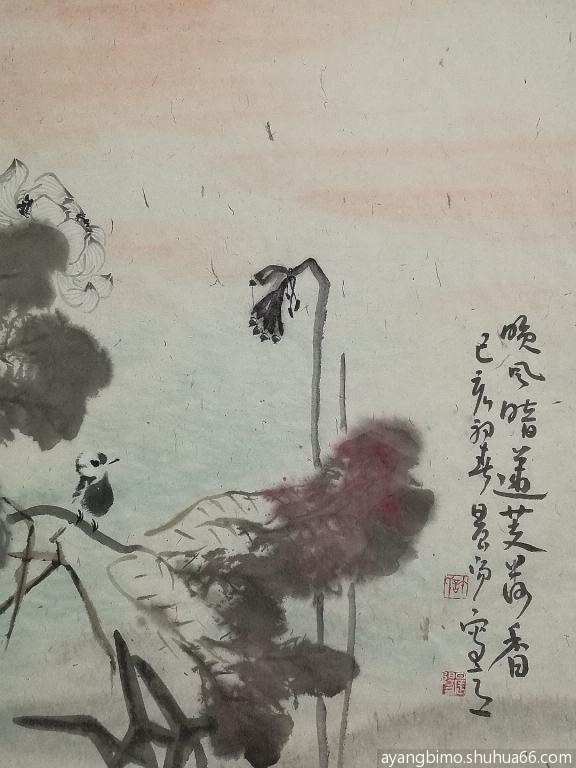 晚风暗递芰荷香
己亥初春 阳写之
ayangbimo.shuhua66.com